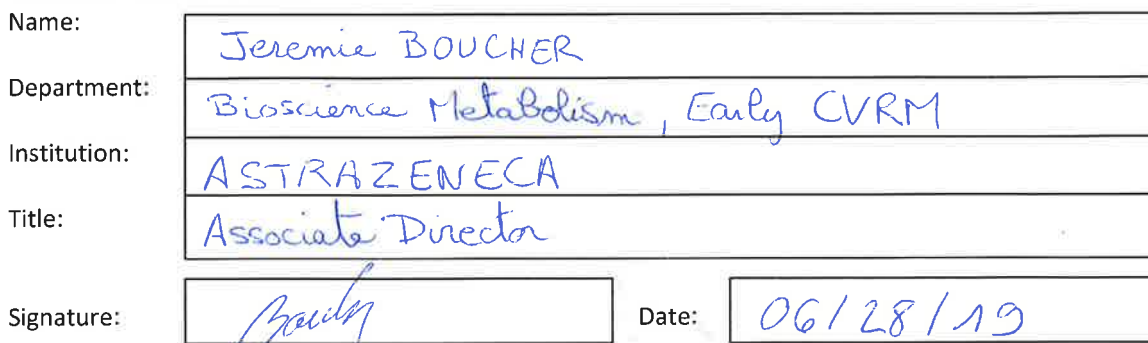 Name: Jeremie BOUCHER
Department: Bioscience Metabolism, Early CVRM
Institution: ASTRAZENECA
Title: Associate Director
Signature: Date: 06/28/19